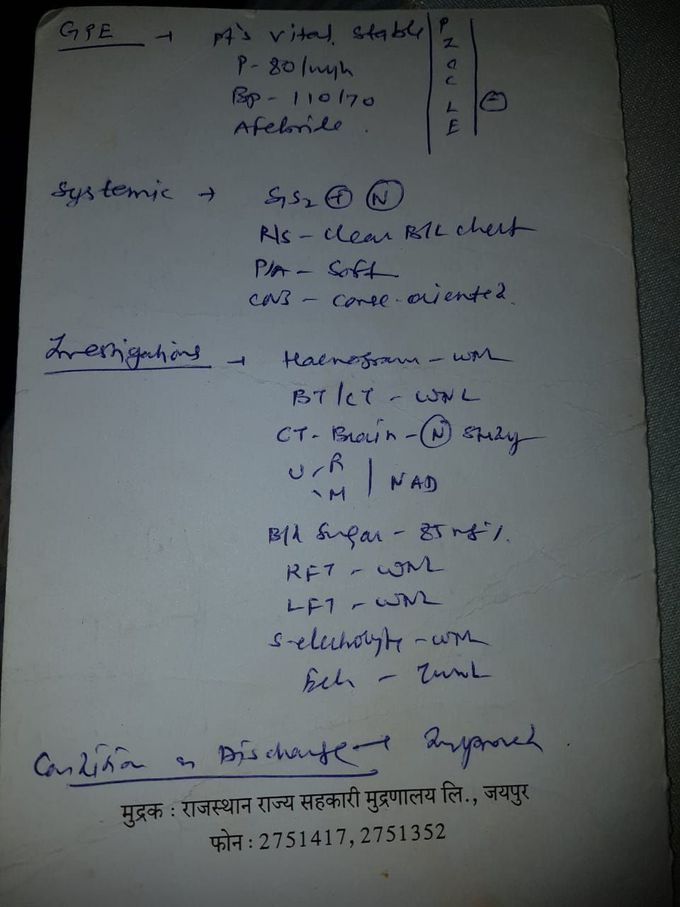 GPE → Pt's vital stable
P - 80/min
Bp - 110/70
Afebrile.
P
I
C
C
L
E
⊖
Systemic → S1S2 ⊕ Ⓝ
R/S - clear B/L chest
P/A - Soft
CNS - consc. oriented.
Investigations → Haemogram - WNL
BT/CT - WNL
CT - Brain - Ⓝ study
U - R
- M | NAD
Bld Sugar - 85 mg%.
RFT - WNL
LFT - WNL
S-electrolyte - WNL
Condition on Discharge → Improved.
मुद्रक : राजस्थान राज्य सहकारी मुद्रणालय लि., जयपुर
फोन : 2751417, 2751352